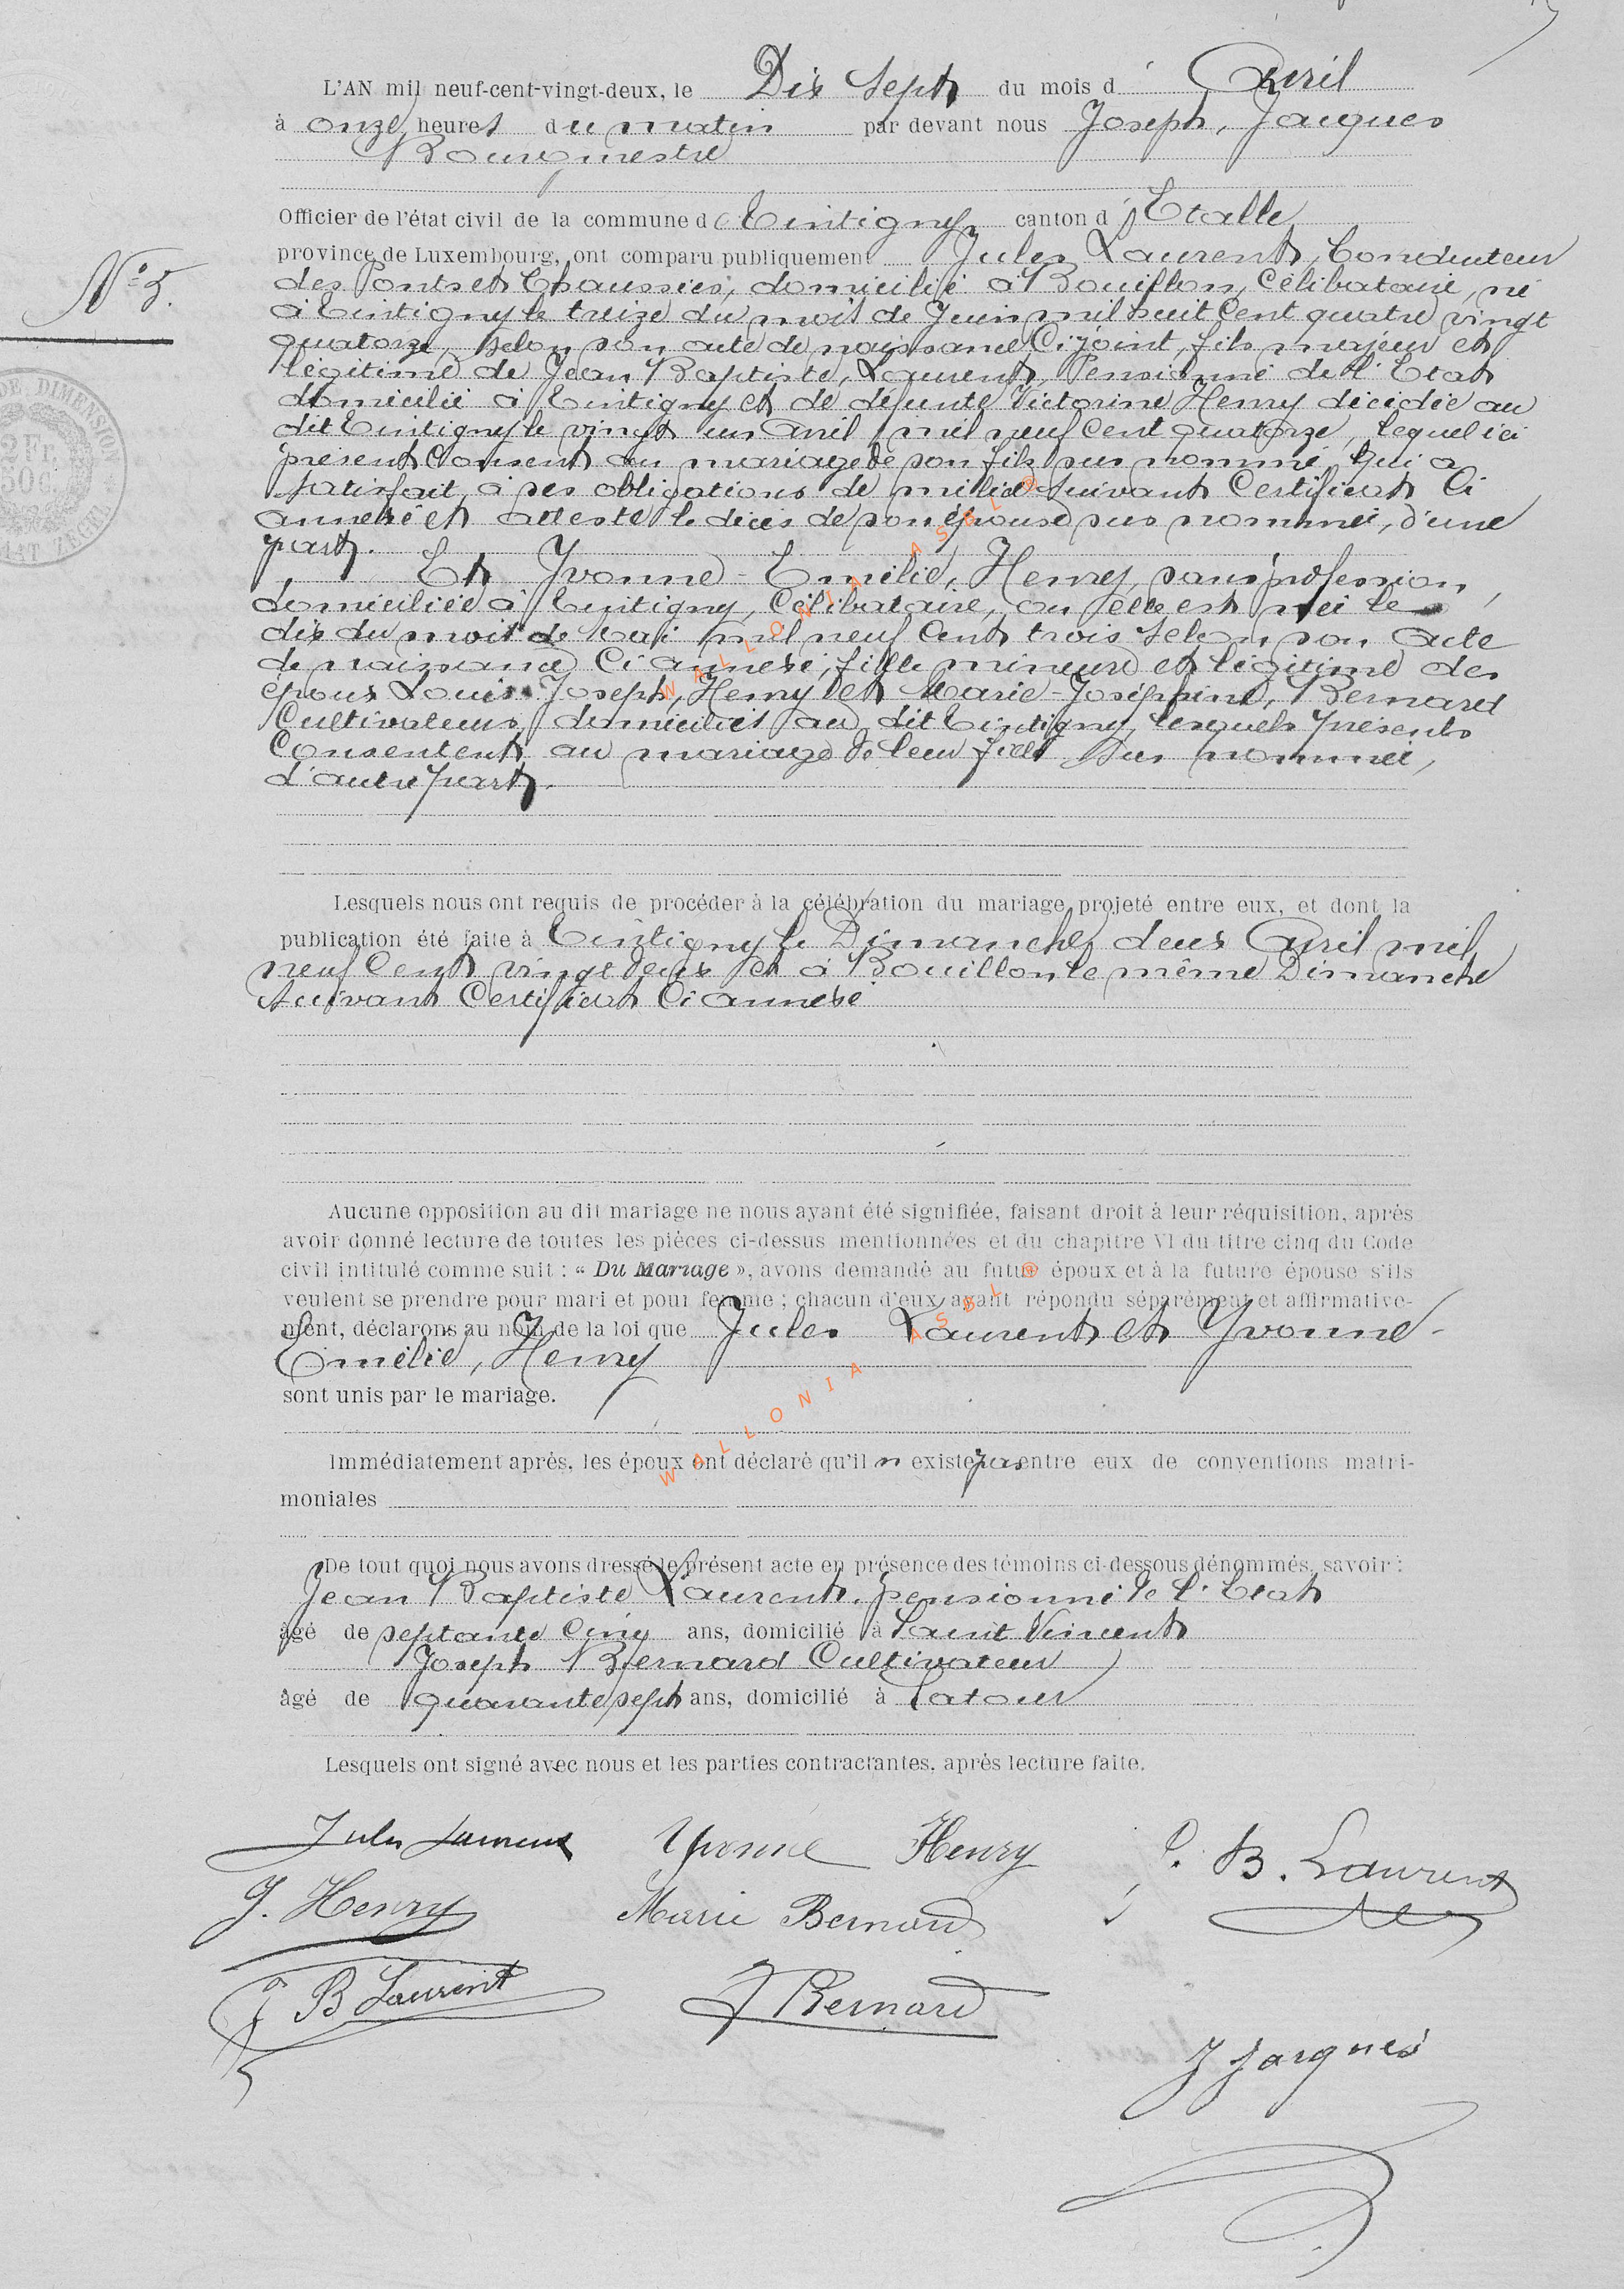 L'AN mil neuf-cent-vingt-deux, le Dix Sept du mois d' Avril
à onze heures du matin par devant nous Joseph, Jacques
Bourgmestre
Officier de l'état civil de la commune de Tintigny canton d'Etalle
province de Luxembourg, ont comparu publiquement Jules Laurent, Conducteur
N° 5.
des Ponts et Chaussées, domicilié à Bouillon, célibataire, né
à Tintigny le treize du mois de Juin mil huit Cent quatre vingt
quatorze, selon son acte de naissance Ci joint, fils majeur et
légitime de Jean Baptiste, Laurent, Pensionné de l'Etat
domicilié à Tintigny et de défunte Victorine Henry décédée au
dit Tintigny le vingt un Avril mil neuf Cent quatorze, lequel ici
présent Consent au mariage de son fils sus nommé qui a
satisfait à ses obligations de milice suivant Certificat Ci
annexé et atteste le décès de son épouse sus nommée, d'une
part.
Et Yvonne-Emélie, Henry, sans profession,
domiciliée à Tintigny, Célibataire, où elle est née le
dix du mois de Mai mil neuf Cent trois selon son acte
de naissance Ci annexé, fille mineure et légitime des
époux Louis-Joseph, Henry et Marie-Joséphine, Bernard
Cultivateurs, domiciliés au dit Tintigny, lesquels présents
Consentent au mariage de leur fille sus nommée,
d'autre part.
Lesquels nous ont requis de procéder à la célébration du mariage projeté entre eux, et dont la
publication été faite à Tintigny le Dimanche deux Avril mil
neuf Cent vingt deux et à Bouillon le même Dimanche
suivant Certificat Ci annexé
Aucune opposition au dit mariage ne nous ayant été signifiée, faisant droit à leur réquisition, après
avoir donné lecture de toutes les pièces ci-dessus mentionnées et du chapitre VI du titre cinq du Code
civil intitulé comme suit : « Du Mariage », avons demandé au futur époux et à la future épouse s'ils
veulent se prendre pour mari et pour femme ; chacun d'eux ayant répondu séparément et affirmative-
ment, déclarons au nom de la loi que Jules Laurent et Yvonne-
Emélie, Henry
sont unis par le mariage.
Immédiatement après, les époux ont déclaré qu'il n existe pas entre eux de conventions matri-
moniales
De tout quoi nous avons dressé le présent acte en présence des témoins ci-dessous dénommés, savoir :
Jean Baptiste Laurent, pensionné de l'Etat
âgé de septante Cinq ans, domicilié à Saint Vincent
Joseph Bernard Cultivateur
âgé de quarante sept ans, domicilié à Latour
Lesquels ont signé avec nous et les parties contractantes, après lecture faite.
Jules Laurent Yvonne Henry J. B. Laurent
J. Henry Marie Bernard
J B Laurent J Bernard
J Jacques
WALLONIA ASBL ®
WALLONIA ASBL ®